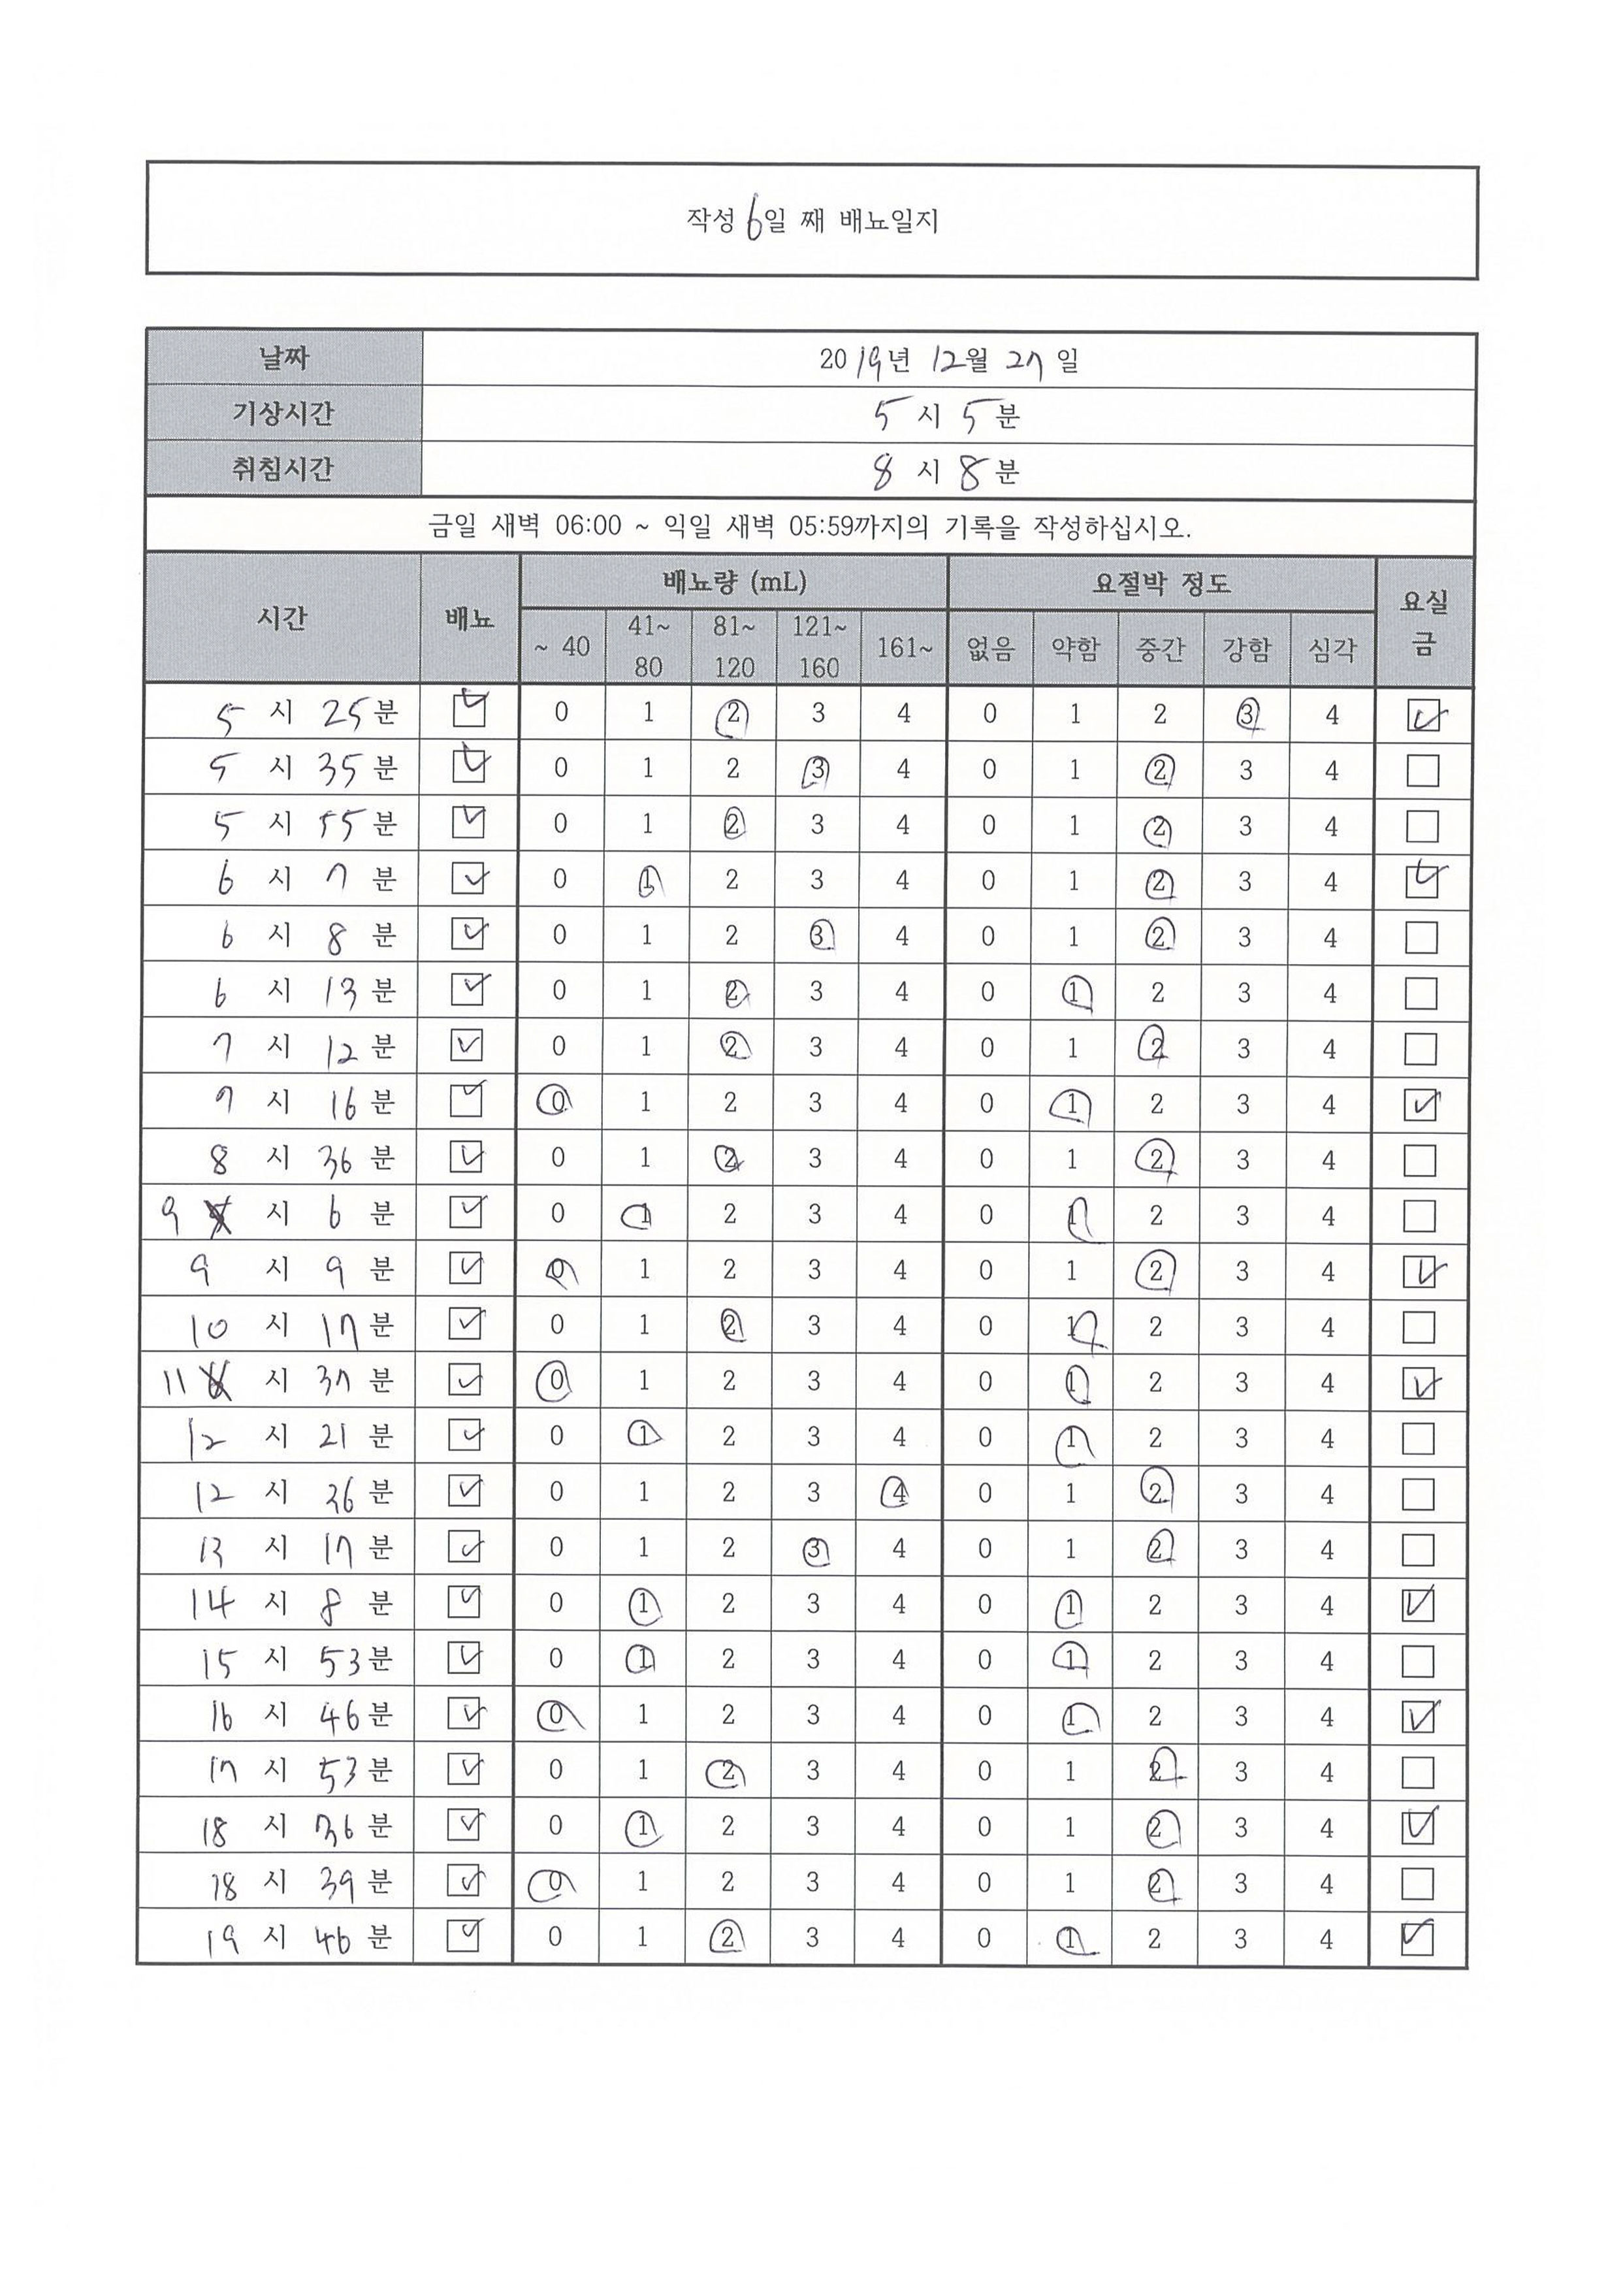 작성 6일 째 배뇨일지
날짜 2019년 12월 27일
기상시간 5시 5분
취침시간 8시 8분
금일 새벽 06:00 ~ 익일 새벽 05:59까지의 기록을 작성하십시오.
시간 배뇨 배뇨량 (mL) 요절박 정도 요실금
~ 40 41~80 81~120 121~160 161~ 없음 약함 중간 강함 심각
5시 25분 0 1 2 3 4 0 1 2 3 4
5시 35분 0 1 2 3 4 0 1 2 3 4
5시 55분 0 1 2 3 4 0 1 2 3 4
6시 7분 0 1 2 3 4 0 1 2 3 4
6시 8분 0 1 2 3 4 0 1 2 3 4
6시 13분 0 1 2 3 4 0 1 2 3 4
7시 12분 0 1 2 3 4 0 1 2 3 4
7시 16분 0 1 2 3 4 0 1 2 3 4
8시 36분 0 1 2 3 4 0 1 2 3 4
9시 6분 0 1 2 3 4 0 1 2 3 4
9시 9분 0 1 2 3 4 0 1 2 3 4
10시 17분 0 1 2 3 4 0 1 2 3 4
11시 37분 0 1 2 3 4 0 1 2 3 4
12시 21분 0 1 2 3 4 0 1 2 3 4
12시 36분 0 1 2 3 4 0 1 2 3 4
13시 17분 0 1 2 3 4 0 1 2 3 4
14시 8분 0 1 2 3 4 0 1 2 3 4
15시 53분 0 1 2 3 4 0 1 2 3 4
16시 46분 0 1 2 3 4 0 1 2 3 4
17시 53분 0 1 2 3 4 0 1 2 3 4
18시 36분 0 1 2 3 4 0 1 2 3 4
18시 39분 0 1 2 3 4 0 1 2 3 4
19시 46분 0 1 2 3 4 0 1 2 3 4